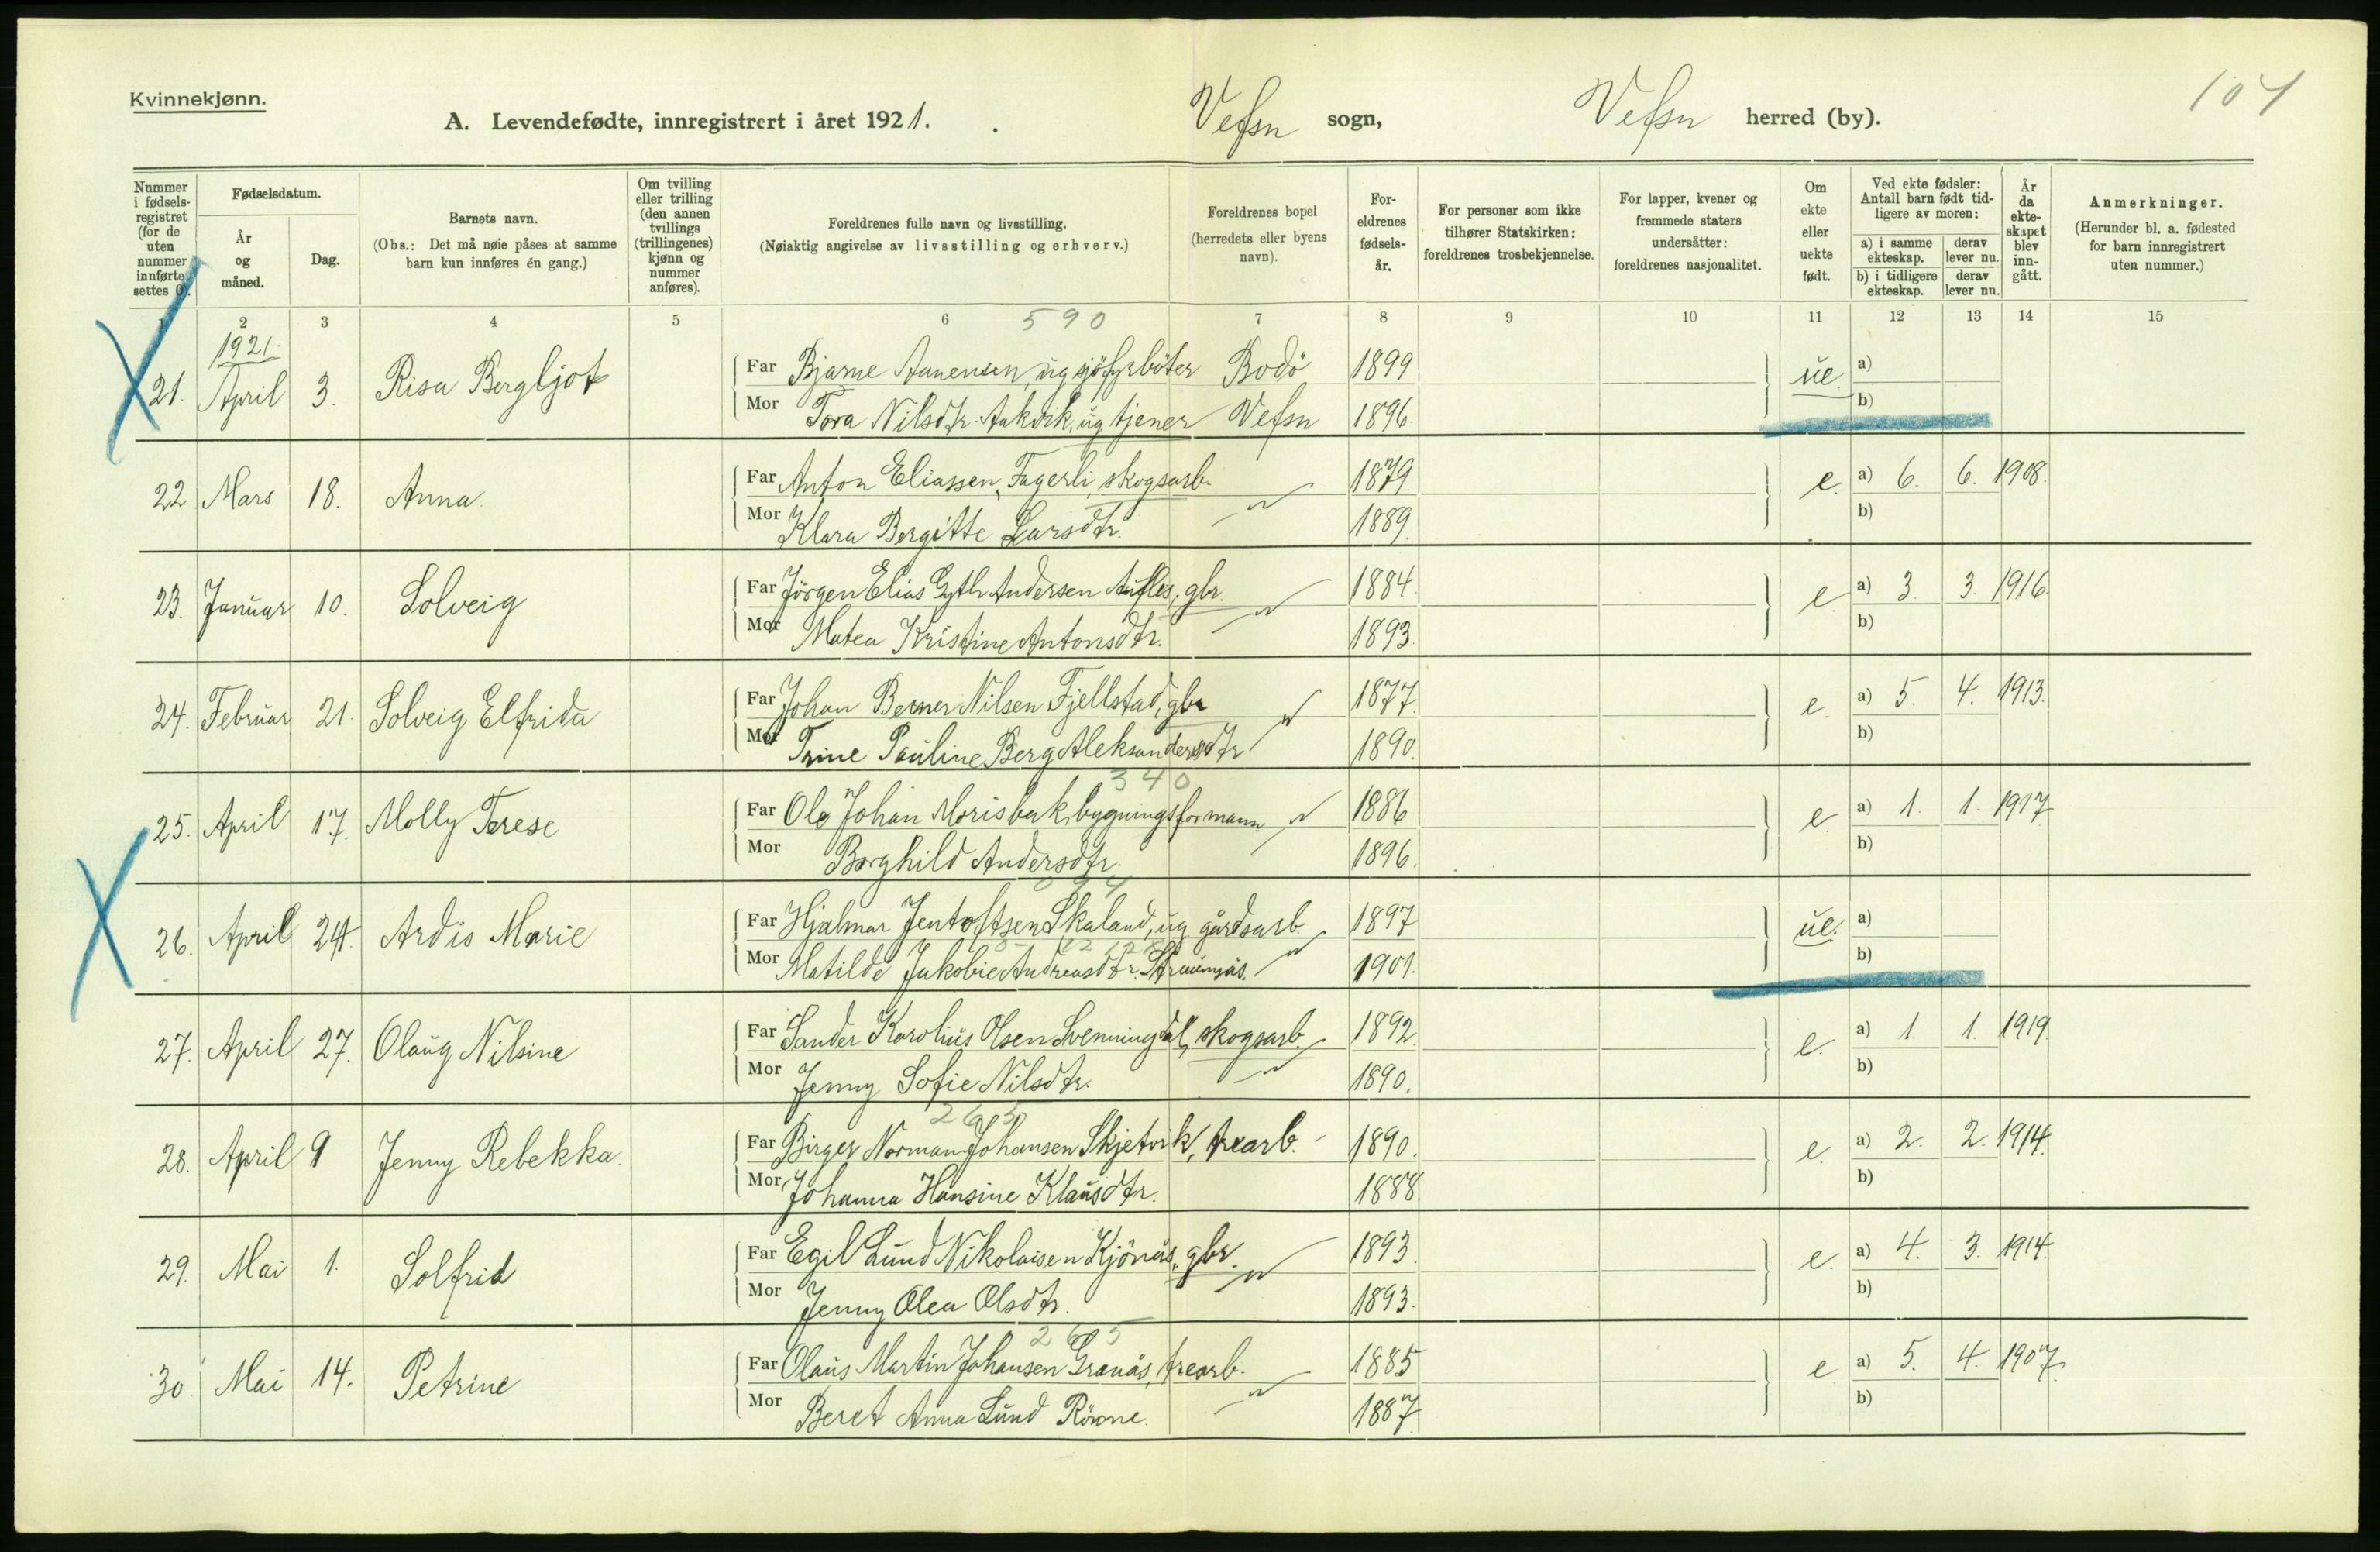 Kvinnekjønn.
A. Levendefødte, innregistrert i året 1921. Vefsn sogn, Vefsn herred (by).
104
Nummer i fødselsregistret (for de uten nummer innførte settes 0).
Fødselsdatum.
År og måned.
Dag.
Barnets navn.
(Obs.: Det må nøie påses at samme barn kun innføres én gang.)
Om tvilling eller trilling (den annen tvillings (trillingenes) kjønn og nummer anføres).
Foreldrenes fulle navn og livsstilling.
(Nøiaktig angivelse av livsstilling og erhverv.)
Foreldrenes bopel (herredets eller byens navn).
Foreldrenes fødselsår.
For personer som ikke tilhører Statskirken: foreldrenes trosbekjennelse.
For lapper, kvener og fremmede staters undersåtter: foreldrenes nasjonalitet.
Om ekte eller uekte født.
Ved ekte fødsler: Antall barn født tidligere av moren:
a) i samme ekteskap. derav lever nu.
b) i tidligere ekteskap. derav lever nu.
År da ekteskapet blev inngått.
Anmerkninger.
(Herunder bl. a. fødested for barn innregistrert uten nummer.)
1 2 3 4 5 6 7 8 9 10 11 12 13 14 15
590
1921.
21. April 3. Risa Bergljot Far Bjarne Aanensen, ug sjöfyrböter Bodö 1899 ue. a)
Mor Tora Nilsdtr. Aakvik, ug tjener Vefsn 1896. b)
22 Mars 18. Anna. Far Anton Eliassen, Fagerli, skogsarb. 1879. e. a) 6. 6. 1908.
Mor Klara Bergitte Larsdtr. 1889. b)
23. Januar 10. Solveig Far Jörgen Elias Gyth Andersen Aufles, gbr. 1884. e a) 3. 3. 1916.
Mor Matea Kristine Antonsdtr. 1893. b)
24. Februar 21. Solveig Elfrida Far Johan Berner Nilsen Fjellstad, gbr 1877. e. a) 5. 4. 1913.
Mor Trine Pauline Berg Aleksandersdtr 1890. b)
340
25. April 17. Molly Terese Far Ole Johan Morisbak, bygningsformann 1886 e. a) 1. 1. 1917
Mor Borghild Andersdtr. 1896. b)
26. April 24. Ardis Marie Far Hjalmar Jentoftsen Skaland, ug gårdsarb. 1897 ue. a)
Mor Matilde Jakobie Andreasdtr. 1901. b)
27. April 27. Olaug Nilsine Far Sander Karolius Olsen Svenningdal, skogsarb. 1892. e. a) 1. 1. 1919.
Mor Jenny Sofie Nilsdtr. 1890. b)
265
28. April 9 Jenny Rebekka. Far Birger Norman Johansen Skjetvik, trearb. 1890. e. a) 2. 2. 1914.
Mor Johanna Hansine Klausdtr. 1888 b)
29. Mai 1. Solfrid Far Egil Lund Nikolaisen Kjönås, gbr. 1893 e. a) 4. 3. 1914.
Mor Jenny Olea Olsdtr. 1893. b)
265
30. Mai 14. Petrine Far Olaus Martin Johansen Granås, trearb. 1885 e a) 5. 4. 1907.
Mor Beret Anna Lund 1887 b)